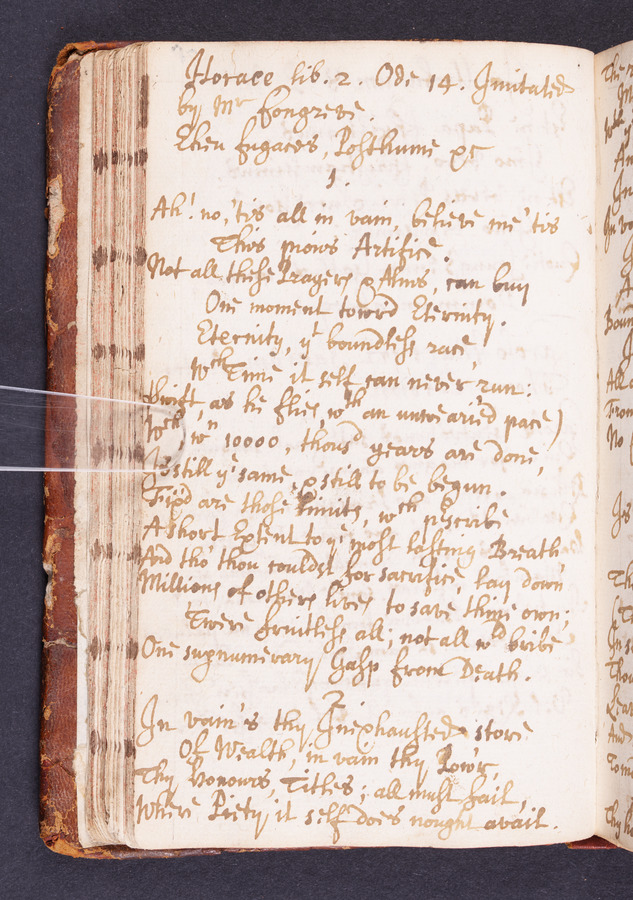 Horace lib. 2. Ode 14. Imitated
by Mr Congreve.
Eheu fugaces, Posthume &c
1.
Ah! no, 'tis all in vain, believe me 'tis
This pious Artifice.
Not all these Prayers & Alms, can buy
One moment tow'rd Eternity.
Eternity, ye boundless race
Wch Time it self can never run:
Swift, as he flies, wth an unwearied pace)
Wch wn 10000, thousd years are done,
Is still ye same, & still to be begun.
Fix'd are those Limits, wch prscribe
A short Extent to ye most lasting Breath
And tho' thou couldst for sacrifice, lay down
Millions of others lives to save thine own;
'Twere fruitless all; not all wd bribe
One supnumerary Gasp from Death.
2
In vain's thy Inexhausted store
Of Wealth, in vain thy Pow'r,
Thy Honours, Titles; all must fail,
Where Piety it self does nought avail.